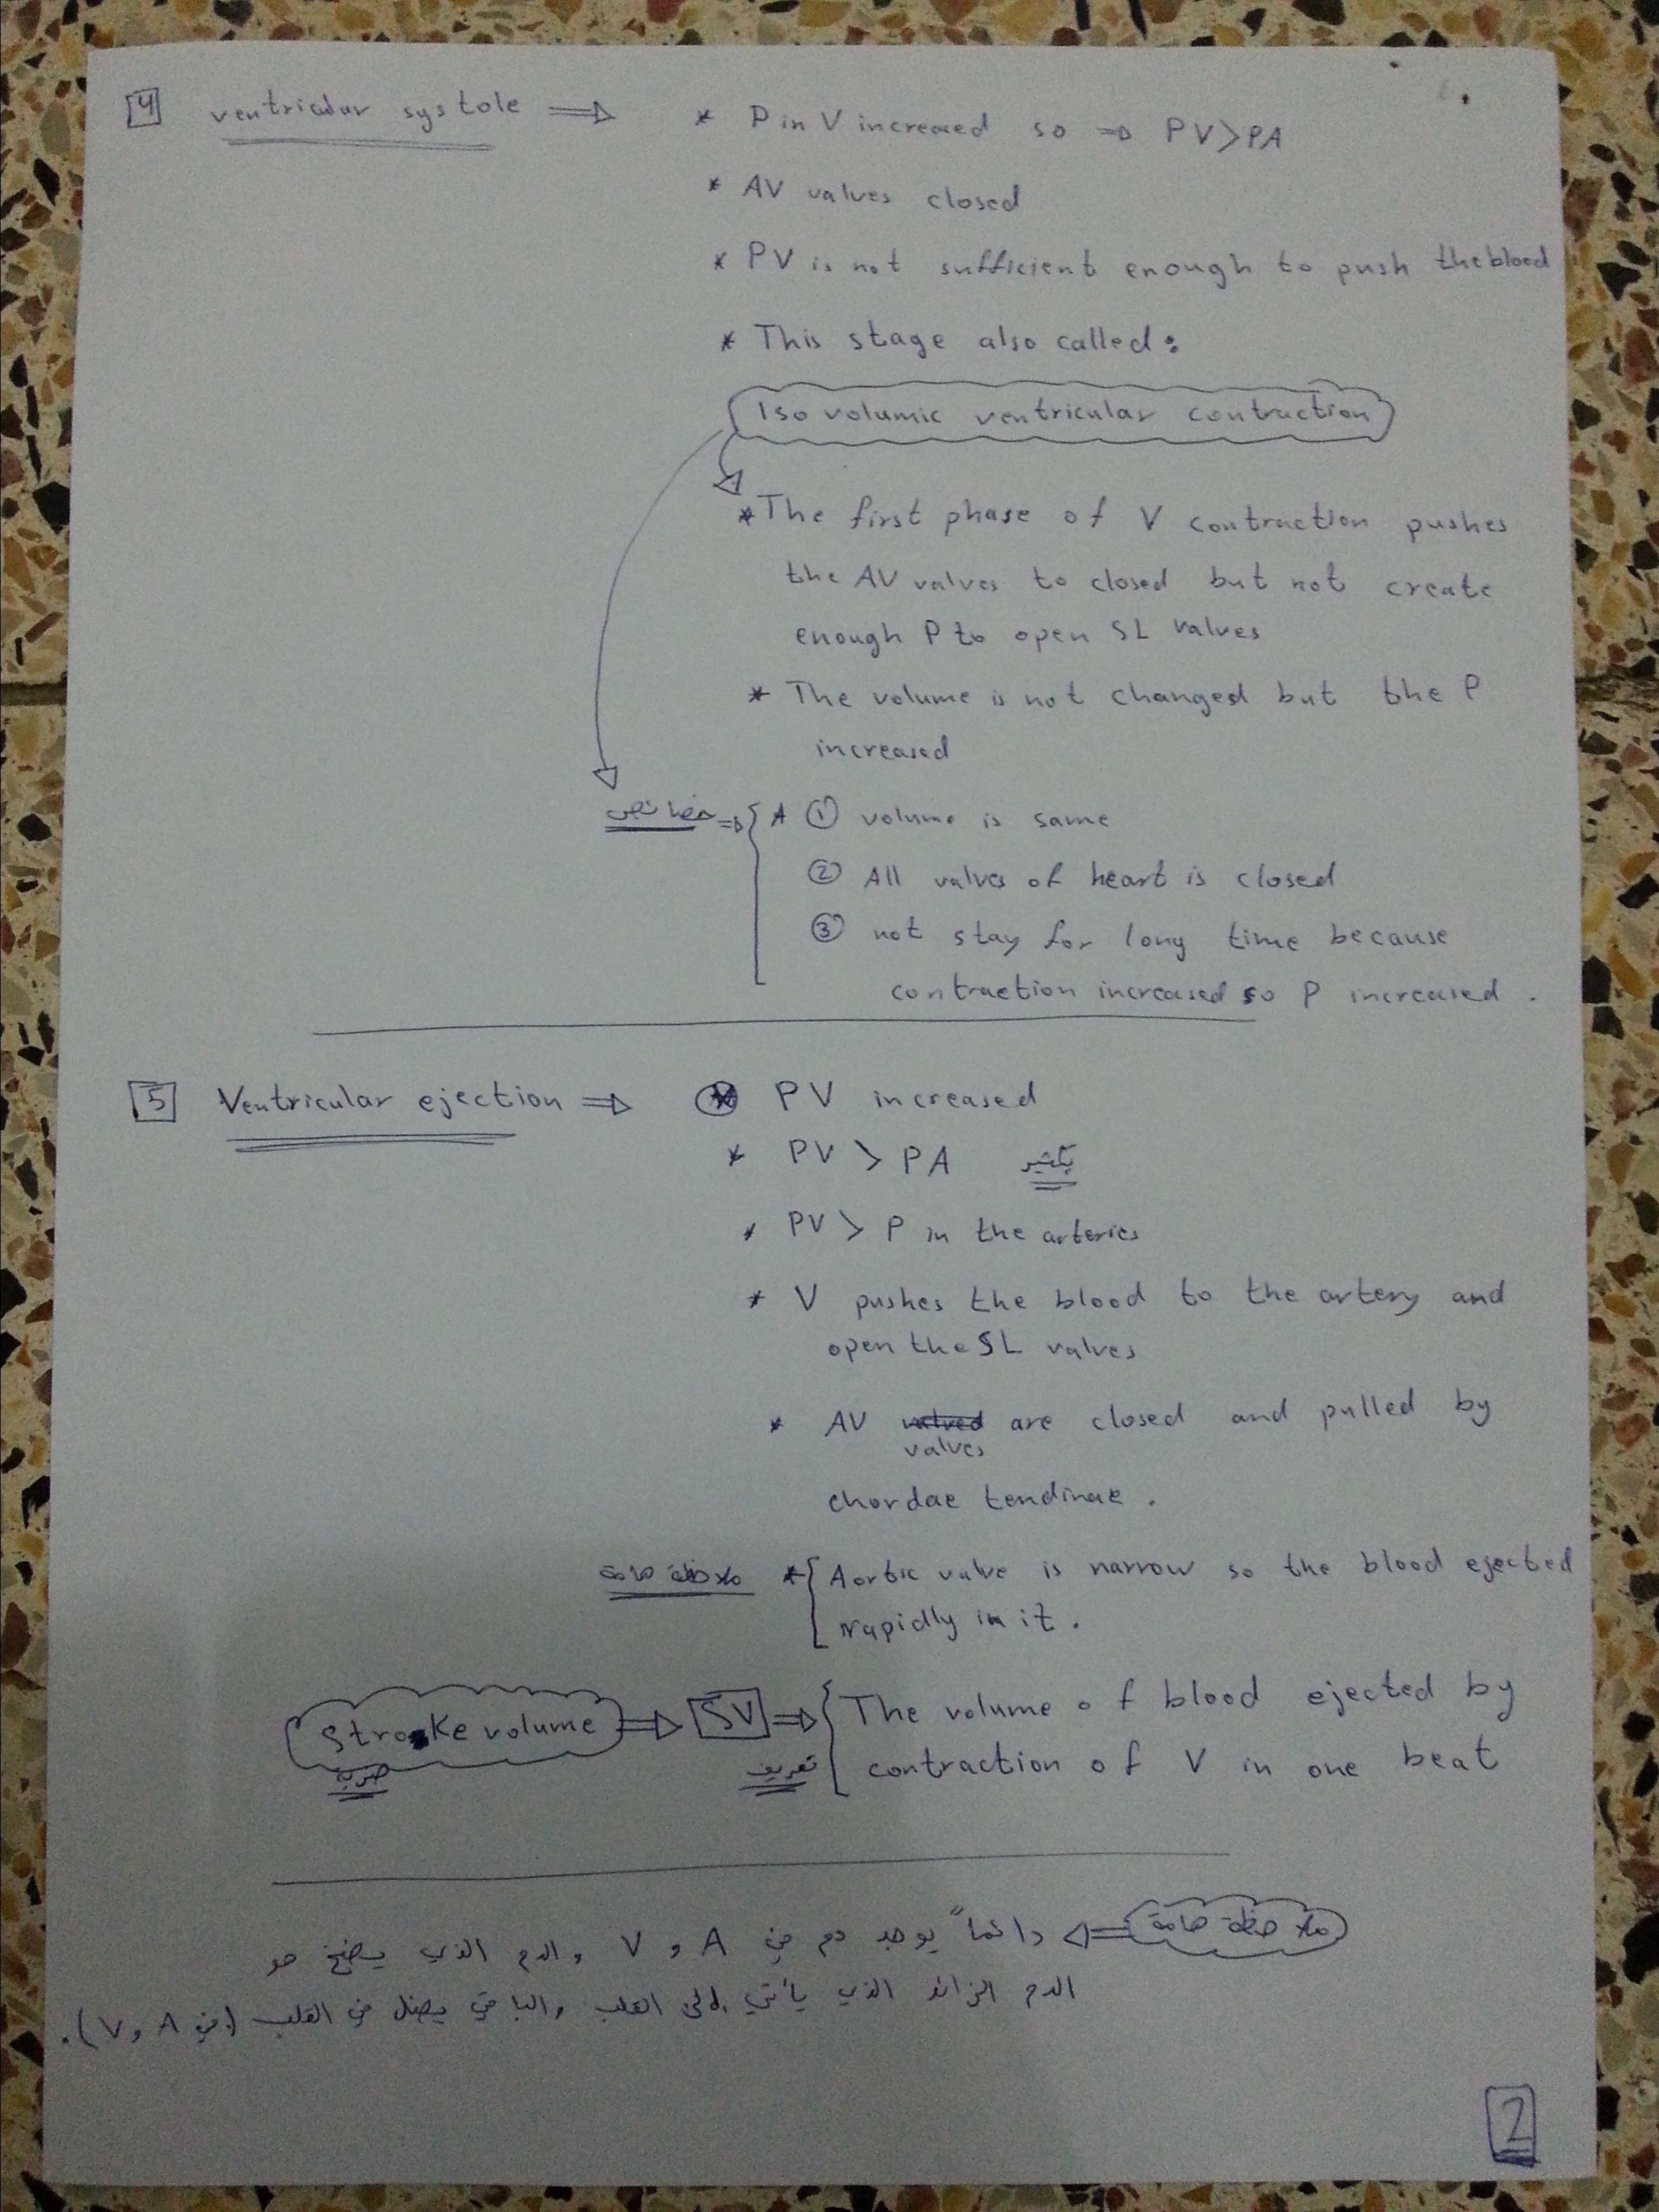 4 ventricular systole ⇒ * P in V increased so ⇒ PV > PA
* AV valves closed
* PV is not sufficient enough to push the blood
* This stage also called :
Iso volumic ventricular contraction
* The first phase of V contraction pushes
the AV valves to closed but not create
enough P to open SL valves
* The volume is not changed but the P
increased
خصائص ⇒ { * ① volume is same
② All valves of heart is closed
③ not stay for long time because
contraction increased so P increased .
5 Ventricular ejection ⇒ * PV increased
* PV > PA بكثير
* PV > P in the arteries
* V pushes the blood to the artery and
open the SL valves
* AV valves are closed and pulled by
chordae tendinae .
ملاحظة هامة * { Aortic valve is narrow so the blood ejected
rapidly in it .
Stroke volume ⇒ SV ⇒ { The volume of blood ejected by
ضربة تعريف contraction of V in one beat
ملاحظة هامة ⇐ دائماً يوجد دم في A و V والدم الذي يضخ هو
الدم الزائد الذي يأتي إلى القلب والباقي يضل في القلب (في A و V).
2